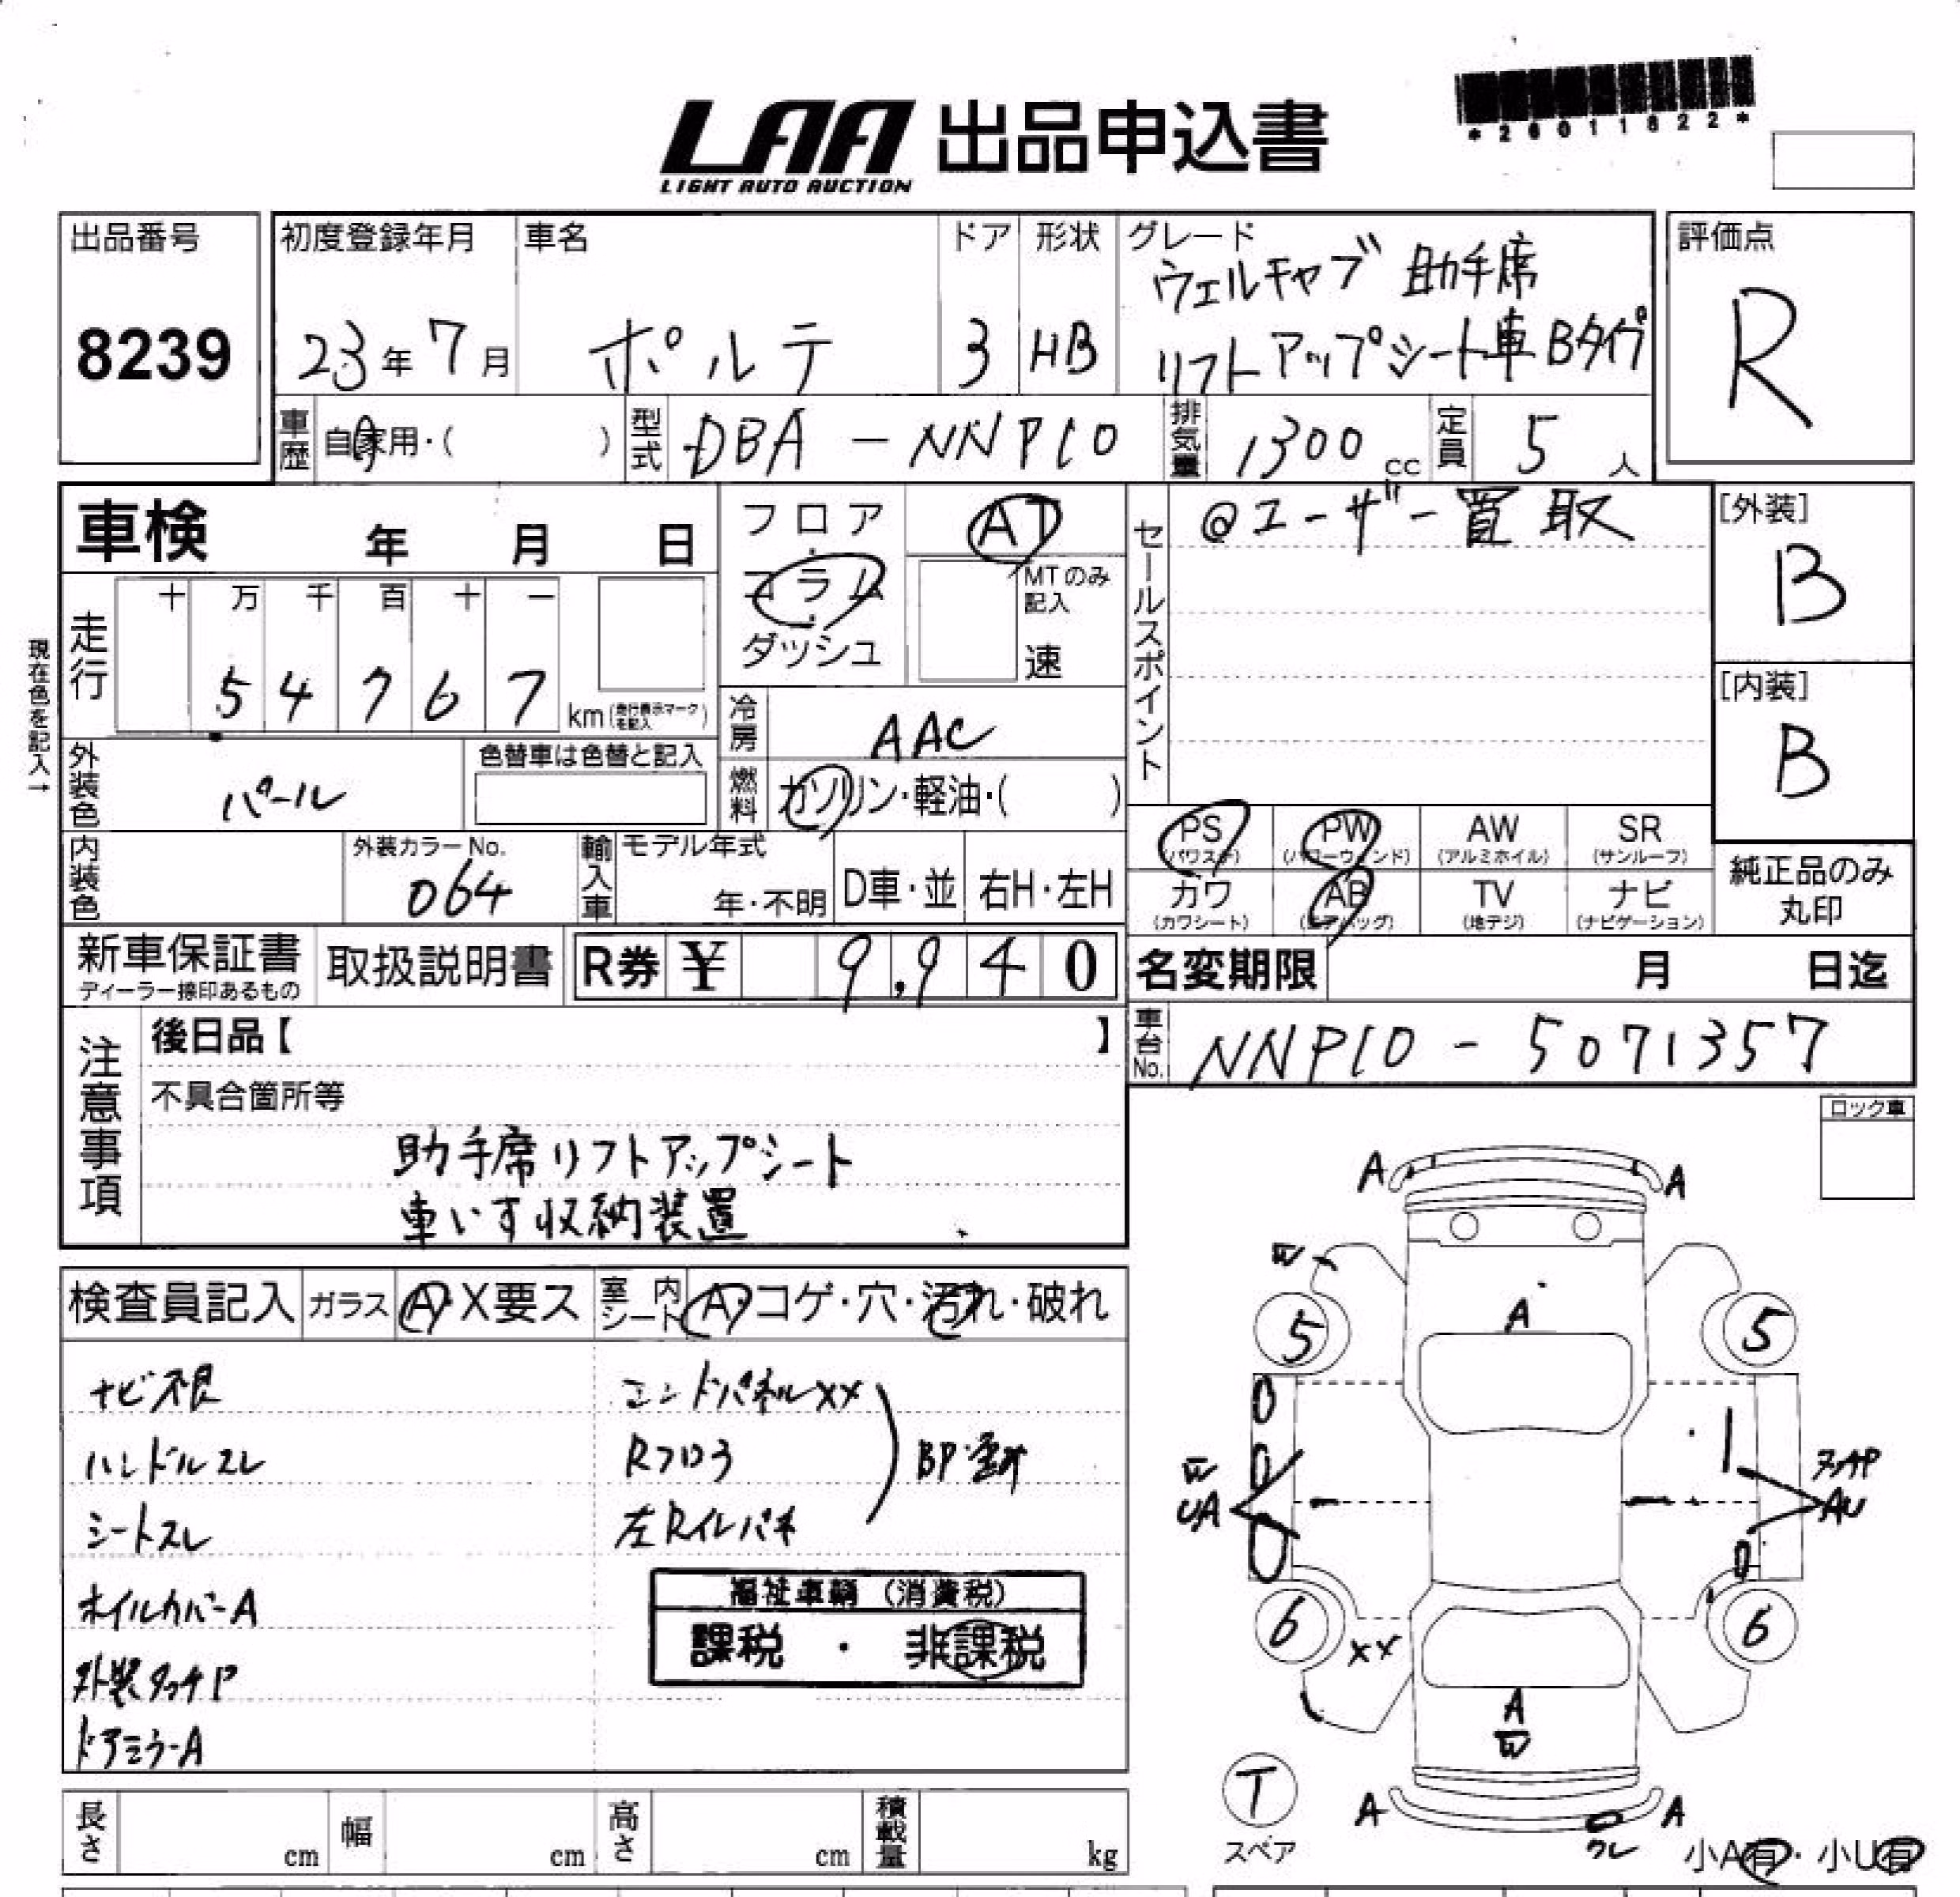 *26011822*
LAA 出品申込書
LIGHT AUTO AUCTION
出品番号
8239
初度登録年月
23年7月
車名
ポルテ
ドア
3
形状
HB
グレード
ウェルキャブ 助手席
リフトアップシート車 Bタイプ
評価点
R
車歴 自家用・( )
型式 DBA-NNP10
排気量 1300 cc
定員 5 人
車検 年 月 日
フロア・コラム・ダッシュ
AT
MTのみ記入
速
セールスポイント
@ユーザー買取
[外装]
B
[内装]
B
現在色を記入→
走行
十 万 千 百 十 一
5 4 7 6 7 km (走行表示マークを記入)
冷房 AAC
燃料 ガソリン・軽油・( )
外装色 パール
色替車は色替と記入
内装色
外装カラーNo.
064
輸入車
モデル年式
年・不明
D車・並
右H・左H
PS (パワステ)
PW (パワーウィンド)
AW (アルミホイル)
SR (サンルーフ)
カワ (カワシート)
AB (エアバッグ)
TV (地デジ)
ナビ (ナビゲーション)
純正品のみ
丸印
新車保証書
ディーラー捺印あるもの
取扱説明書
R券 ¥ 9,940
名変期限 月 日迄
車台No. NNP10-5071357
注意事項
後日品【 】
不具合箇所等
助手席リフトアップシート
車いす収納装置
ロック車
検査員記入
ガラス A・X要ス
室内シート A・コゲ・穴・汚れ・破れ
ナビ不良
ハンドルスレ
シートスレ
ホイルカバーA
外装タッチP
ドアミラーA
エンドパネルXX
Rフロア
左Rインパネ
福祉車輌(消費税)
課税 ・ 非課税
A A
A
5 5
UA
タッチP
AU
6 6
XX
A
T
スペア
A A
小A有・小U有
長さ cm
幅 cm
高さ cm
積載量 kg